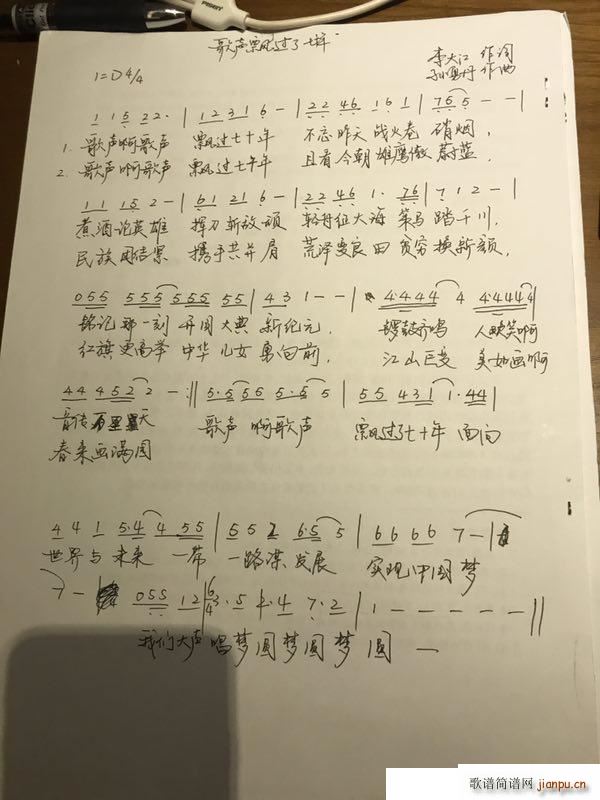 歌声飘过了七十年
1=D 4/4
李大江 作词
作曲
1 1 5 2 2· | 1 2 3 1 6 - | 2 2 4 6 1 6 1 | 7 6 5 - - |
1. 歌声啊歌声 飘过七十年 不忘昨天战火卷硝烟，
2. 歌声啊歌声 飘过七十年 且看今朝雄鹰傲蔚蓝，
1 1 1 5 2 - | 6 1 2 1 6 - | 2 2 4 6 1· 7 6 | 7 1 2 - |
煮酒论英雄 挥刀斩敌顽 轻舟征大海 策马踏千川，
民族团结紧 携手共并肩 荒泽变良田 贫穷换新颜，
0 5 5 5 5 5 5 5 5 5 5 | 4 3 1 - - | 4·4 4 4 4 4·4 4 4 4 |
铭记那一刻 开国大典 新纪元， 锣鼓齐鸣 人欢笑啊
红旗更高举 中华儿女 勇向前， 江山巨变 美如画啊
4 4 4 5 2 2 - :|| 5·5 5 5 5·5 5 | 5 5 4 3 1 1·4 4 |
歌声啊歌声 飘过了七十年 面向
春来画满园
4 4 1 5·4 4 5 5 | 5 5 2 6·5 5 | 6 6 6 6 7 - |
世界与未来 一带 一路谋发展 实现中国梦
7 - | 0 5 5 1 2 | 6/4 3·5 2·4 7·2 | 1 - - - - - ||
我们大声唱梦圆梦圆梦圆 —
歌谱简谱网
jianpu.cn